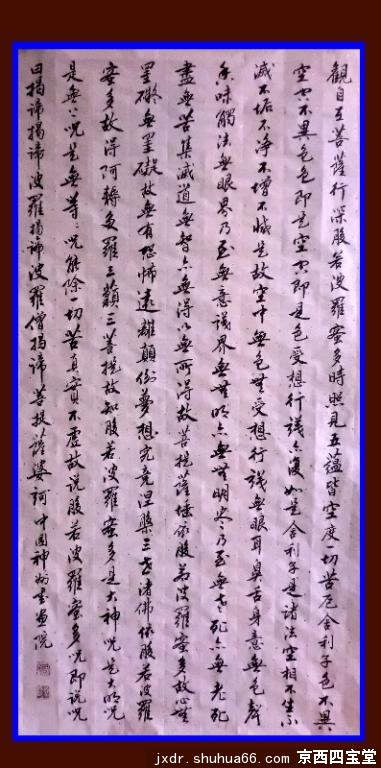 觀自在菩薩行深般若波羅蜜多時照見五蘊皆空度一切苦厄舍利子色不異
空空不異色色即是空空即是色受想行識亦復如是舍利子是諸法空相不生不
滅不垢不淨不增不減是故空中無色無受想行識無眼耳鼻舌身意無色聲
香味觸法無眼界乃至無意識界無無明亦無無明盡乃至無老死亦無老死
盡無苦集滅道無智亦無得以無所得故菩提薩埵依般若波羅蜜多故心無
罣礙無罣礙故無有恐怖遠離顛倒夢想究竟涅槃三世諸佛依般若波羅
蜜多故得阿耨多羅三藐三菩提故知般若波羅蜜多是大神咒是大明咒
是無上咒是無等等咒能除一切苦真實不虛故說般若波羅蜜多咒即說咒
曰揭諦揭諦波羅揭諦波羅僧揭諦菩提薩婆訶 中國神州書畫院
jxdr.shuhua66.com 京西四宝堂